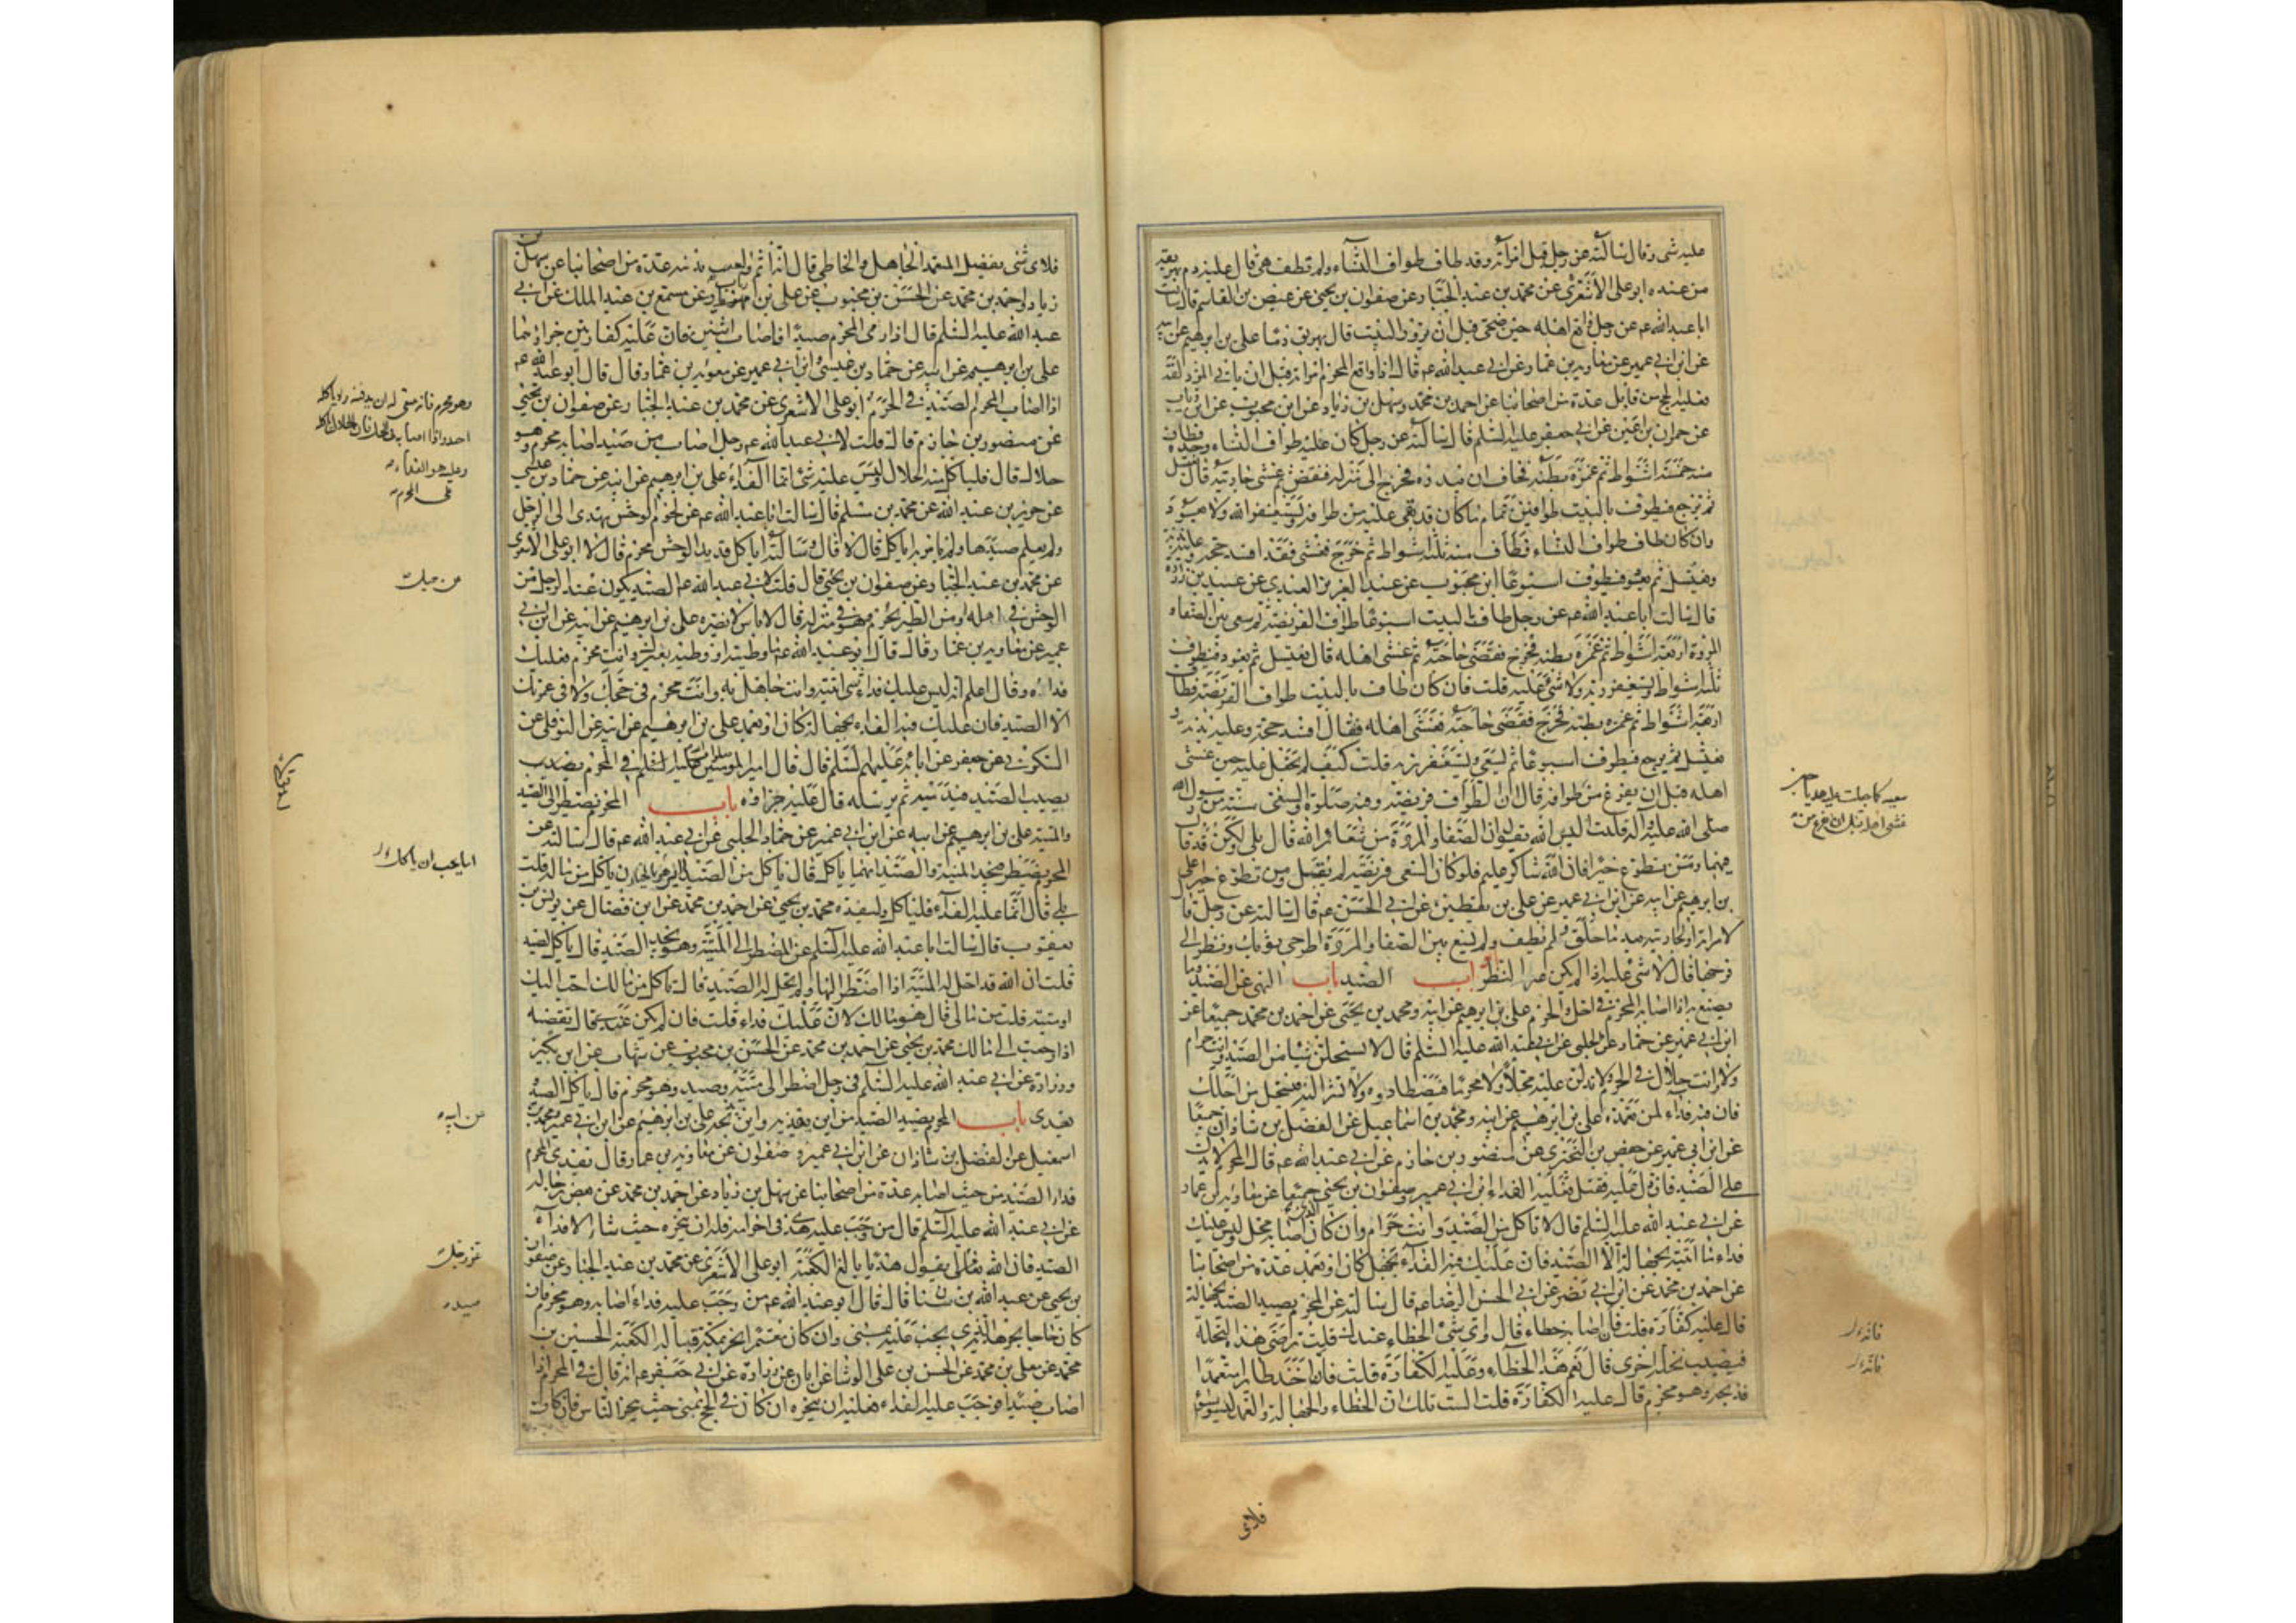 عليه شى وقال سالته عن رجل قبل امراته وقد طاف طواف النساء ولم تطف هى قال عليه دم يهريقه
من عنده ابو على الاشعرى عن محمد بن عبد الجبار وعن صفوان بن يحيى عن عيص بن القاسم قال سالت
ابا عبد الله عم عن رجل واقع اهله حين ضحى قبل ان يزور البيت قال يهريق دما على بن ابرهيم عن ابيه
عن ابن ابى عمير عن معاوية بن عمار عن ابى عبد الله عم قال اذا واقع المحرم امراته قبل ان ياتى المزدلفة
فعليه الحج من قابل عدة من اصحابنا عن احمد بن محمد وسهل بن زياد عن ابن محبوب عن ابن رئاب
عن حمران بن اعين عن ابى جعفر عليه السلم قال سالته عن رجل كان عليه طواف النساء وحده فطاف
منه خمسة اشواط ثم غمزه بطنه فخاف ان يبدره فخرج الى منزله فنفض ثم غشى جاريته قال يغتسل
ثم يرجع فيطوف بالبيت طوافين تمام ما كان قد بقى عليه من طوافه ويستغفر الله ولا يعود
وان كان طاف طواف النساء فطاف منه ثلثة اشواط ثم خرج فغشى فقد افسد حجه وعليه بدنة
ويغتسل ثم يعود فيطوف اسبوعا ابن محبوب عن عبد العزيز العبدى عن عبيد بن زرارة
قال سالت ابا عبد الله عم عن رجل طاف بالبيت اسبوعا طواف الفريضة ثم سعى بين الصفا و
المروة اربعة اشواط ثم غمزه بطنه فخرج فقضى حاجته ثم غشى اهله قال يغتسل ثم يعود فيطوف
ثلثة اشواط ويستغفر ربه ولا شى عليه قلت فان كان طاف بالبيت طواف الفريضة فطاف
اربعة اشواط ثم غمزه بطنه فخرج فقضى حاجته فغشى اهله فقال افسد حجه وعليه بدنة و
يغتسل ثم يرجع فيطوف اسبوعا ثم يسعى ويستغفر ربه قلت كيف لم تجعل عليه حين غشى
اهله قبل ان يفرغ من طوافه قال ان الطواف فريضة وفيه صلوة والسعى سنة من رسول الله
صلى الله عليه واله قلت اليس الله يقول ان الصفا والمروة من شعائر الله قال بلى ولكن قد قال
فيهما ومن تطوع خيرا فان الله شاكر عليم فلو كان السعى فريضة لم يقل ومن تطوع خيرا على
بن ابرهيم عن ابيه عن ابن ابى عمير عن على بن يقطين عن ابى الحسن عم قال سالته عن رجل قال
لامراته او لجاريته بعد ما حلق ولم يطف ولم يسع بين الصفا والمروة اطرحى ثوبك ونظر الى
فرجها قال لا شى عليه اذا لم يكن غير النظر ابواب الصيد باب النهى عن الصيد وما
يصنع به اذا اصابه المحرم فى الحل والحرم على بن ابرهيم عن ابيه ومحمد بن يحيى عن احمد بن محمد جميعا عن
ابن ابى عمير عن حماد عن الحلبى عن ابى عبد الله عليه السلم قال لا تستحلن شيئا من الصيد وانت حرام
ولا وانت حلال فى الحرم ولا تدلن عليه محلا ولا محرما فيصطادوه ولا تشر اليه فيستحل من اجلك
فان فيه فداء لمن تعمده على بن ابرهيم عن ابيه ومحمد بن اسماعيل عن الفضل بن شاذان جميعا
عن ابن ابى عمير عن حفص بن البخترى عن منصور بن حازم عن ابى عبد الله عم قال المحرم لا يدل
على الصيد فان دل عليه فقتل فعليه الفداء ابن ابى عمير وصفوان بن يحيى جميعا عن معاوية بن عمار
عن ابى عبد الله عليه السلم قال لا تاكل من الصيد وانت حرام وان كان اصابه محل وليس عليك
فداء ما اتيته بجهالة الا الصيد فان عليك فيه الفداء بجهل كان او بعمد عدة من اصحابنا
عن احمد بن محمد عن ابن ابى نصر عن ابى الحسن الرضا عم قال سالته عن المحرم يصيد الصيد بجهالة
قال عليه كفارة قلت فان اصابه خطاء قال واى شى الخطاء عندك قلت ترمى هذه النخلة
فيصيب نخلة اخرى قال نعم هذا الخطاء وعليه الكفارة قلت فانه اخذ طايرا متعمدا
فذبحه وهو محرم قال عليه الكفارة قلت الست قلت ان الخطاء والجهالة والعمد ليسوا بسواء
فلاى
فلاى شى يفضل المتعمد الجاهل والخاطى قال انه اثم ولعب بدينه عدة من اصحابنا عن سهل بن
زياد واحمد بن محمد عن الحسن بن محبوب عن على بن رئاب عن مسمع بن عبد الملك عن ابى
عبد الله عليه السلم قال اذا رمى المحرم صيدا فاصاب اثنين فان عليه كفارتين جزاؤهما
على بن ابرهيم عن ابيه عن حماد بن عيسى وابن ابى عمير عن معوية بن عمار قال قال ابو عبد الله عم
اذا اصاب المحرم الصيد فى الحرم ابو على الاشعرى عن محمد بن عبد الجبار عن صفوان بن يحيى
عن منصور بن حازم قال قلت لابى عبد الله عم رجل اصاب من صيد اصابه محرم وهو
حلال قال فلياكل منه الحلال وليس عليه شى انما الفداء على بن ابرهيم عن ابيه عن حماد بن عيسى
عن حريز بن عبد الله عن محمد بن مسلم قال سالت ابا عبد الله عم عن لحوم الوحش تهدى الى الرجل
ولم يعلم صيدها ولم يامر به اياكله قال لا قال وسالته اياكل قديد الوحش محرم قال لا ابو على الاشعرى
عن محمد بن عبد الجبار عن صفوان بن يحيى قال قلت لابى عبد الله عم الصيد يكون عند الرجل من
الوحش فى اهله او من الطير يحرم وهو فى منزله قال لا باس لا يضره على بن ابرهيم عن ابيه عن ابن ابى
عمير عن معاوية بن عمار قال قال ابو عبد الله عم ما وطئته او وطئه بعيرك وانت محرم فعليك
فداؤه وقال اعلم انه ليس عليك فداء شى اتيته وانت جاهل به وانت محرم فى حجك ولا فى عمرتك
الا الصيد فان عليك فيه الفداء بجهالة كان او بعمد على بن ابرهيم عن ابيه عن النوفلى عن
السكونى عن جعفر عن ابائه عليهم السلم قال قال امير المؤمنين عليه السلم فى المحرم يصيب
الصيد فيدميه ثم يرسله قال عليه جزاؤه باب المحرم يضطر الى الصيد
والميتة على بن ابرهيم عن ابيه عن ابن ابى عمير عن حماد عن الحلبى عن ابى عبد الله عم قال سالته عن
المحرم يضطر فيجد الميتة والصيد ايهما ياكل قال ياكل من الصيد ان ياكل من ماله قلت
بلى قال انما عليه الفداء فلياكل وليفده محمد بن يحيى عن احمد بن محمد عن ابن فضال عن يونس بن
يعقوب قال سالت ابا عبد الله عليه السلم عن المضطر الى الميتة وهو يجد الصيد قال ياكل الصيد
قلت ان الله قد احل له الميتة اذا اضطر اليها ولم يحل له الصيد قال تاكل من مالك احب اليك
او ميتة قلت من مالى قال هو مالك لان عليك فداء قلت فان لم يكن عندى مال قال تقضيه
اذا رجعت الى مالك محمد بن يحيى عن احمد بن محمد عن الحسن بن محبوب عن شهاب عن ابن بكير
وزرارة عن ابى عبد الله عليه السلم فى رجل اضطر الى ميتة وصيد وهو محرم قال ياكل الصيد و
يفدى باب المحرم يصيد الصيد من اين يفديه واين يذبحه على بن ابرهيم عن ابن ابى عمير ومحمد بن
اسمعيل عن الفضل بن شاذان عن ابن ابى عمير وصفوان عن معاوية بن عمار قال يفدى المحرم
فداء الصيد من حيث اصابه عدة من اصحابنا عن سهل بن زياد عن احمد بن محمد عن بعض رجاله
عن ابى عبد الله عليه السلم قال من وجب عليه هدى فى احرامه فله ان ينحره حيث شاء الا فداء
الصيد فان الله تعالى يقول هديا بالغ الكعبة ابو على الاشعرى عن محمد بن عبد الجبار عن صفوان
بن يحيى عن عبد الله بن سنان قال قال ابو عبد الله عم من وجب عليه فداء اصابه وهو محرم فان
كان حاجا نحر هديه الذى يجب عليه بمنى وان كان معتمرا نحر بمكة قبالة الكعبة الحسين بن
محمد عن معلى بن محمد عن الحسن بن على الوشا عن ابان عن زرارة عن ابى جعفر عم انه قال فى المحرم اذا
اصاب صيدا فوجب عليه الفداء فعليه ان ينحره ان كان فى الحج بمنى حيث ينحر الناس فان كان